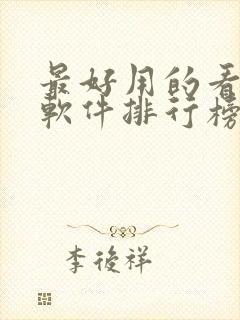 最好用的看
軟件排行榜
李後祥